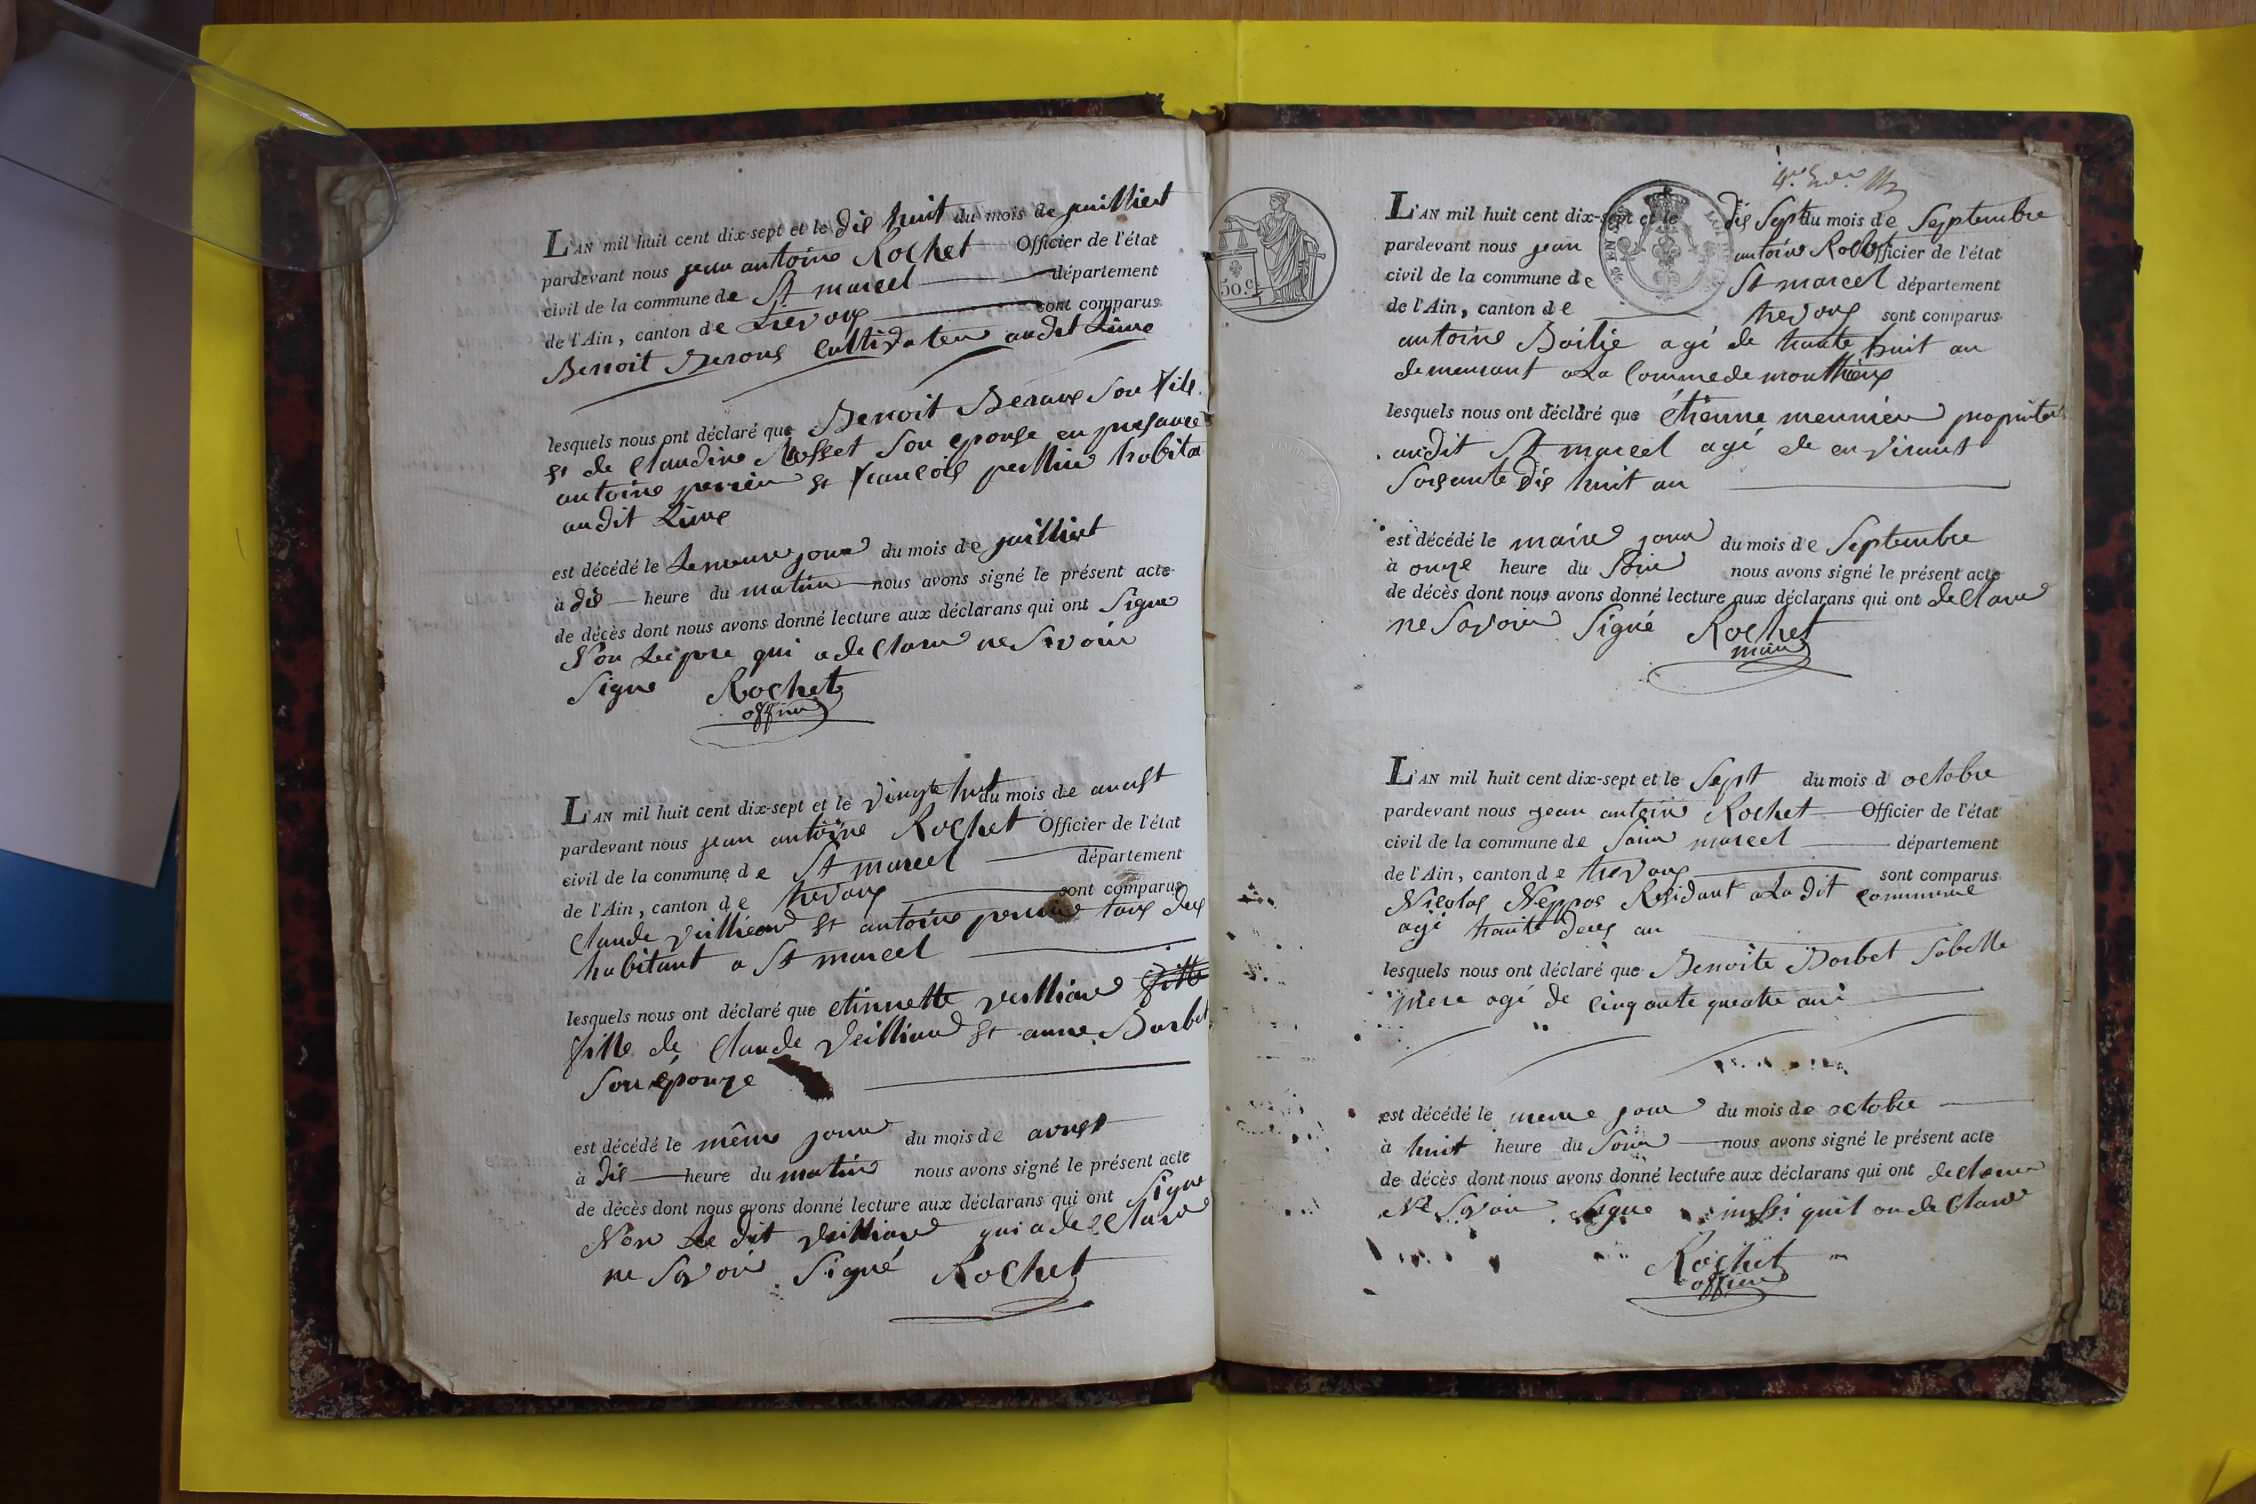 L'AN mil huit cent dix-sept et le dis huit du mois de juilliert
pardevant nous jean antoine Rochet Officier de l'état
civil de la commune de St marcel département
de l'Ain, canton de trevoux sont comparus
Benoit cultivateur audit
lesquels nous ont déclaré que Benoit son fils
et de Claudine son epouse en presance
antoine perrier et françois habita
audit
est décédé le le meme jour du mois de juilliert
à dis heure du matin nous avons signé le présent acte
de décès dont nous avons donné lecture aux déclarans qui ont signe
non qui a declare ne savoir
signe Rochet
officier
L'AN mil huit cent dix-sept et le vingt huit du mois de aoust
pardevant nous jean antoine Rochet Officier de l'état
civil de la commune de St marcel département
de l'Ain, canton de trevoux sont comparus
Claude et antoine tous deux
habitant a St marcel
lesquels nous ont déclaré que etiennette fille
fille de Claude et anne Barbet
son épouze
est décédé le même jour du mois de
à dis heure du matin nous avons signé le présent acte
de décès dont nous avons donné lecture aux déclarans qui ont signe
Non Le dit qui a declare
ne savoir signé Rochet
50. c.
L'AN mil huit cent dix-sept et le dis sept du mois de septembre
pardevant nous jean antoine Rochet Officier de l'état
civil de la commune de St marcel département
de l'Ain, canton de trevoux sont comparus
antoine agé de trante huit an
demeurant a La commune de monthieux
lesquels nous ont déclaré que étienne meunier
audit St marcel agé de environt
soisante dis huit an
est décédé le jour du mois de septembre
à onze heure du soir nous avons signé le présent acte
de décès dont nous avons donné lecture aux déclarans qui ont declare
ne savoir signé Rochet
maire
L'AN mil huit cent dix-sept et le sept du mois d octobre
pardevant nous jean antoine Rochet Officier de l'état
civil de la commune de marcel département
de l'Ain, canton de trevoux sont comparus
Nicolas Residant a La dit commune
agé trante deux an
lesquels nous ont déclaré que Benoite sa belle
mere agé de cinq ante quatre ans
est décédé le meme jour du mois de octobre
à huit heure du soir nous avons signé le présent acte
de décès dont nous avons donné lecture aux déclarans qui ont declare
Ne savoir signe quil on declare
Rochet
officier